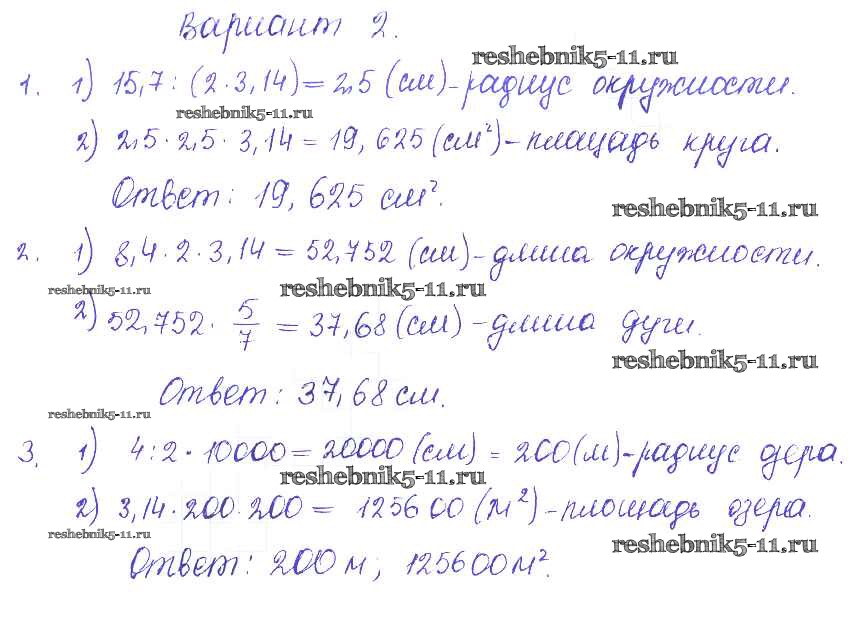 Вариант 2.
reshebnik5-11.ru
1. 1) 15,7 : (2 · 3,14) = 2,5 (см) - радиус окружности.
reshebnik5-11.ru
2) 2,5 · 2,5 · 3,14 = 19,625 (см²) - площадь круга.
Ответ: 19,625 см².
reshebnik5-11.ru
2. 1) 8,4 · 2 · 3,14 = 52,752 (см) - длина окружности.
reshebnik5-11.ru reshebnik5-11.ru
2) 52,752 · 5/7 = 37,68 (см) - длина дуги.
reshebnik5-11.ru
Ответ: 37,68 см.
reshebnik5-11.ru
3. 1) 4 : 2 · 10000 = 20000 (см) = 200 (м) - радиус озера.
reshebnik5-11.ru
2) 3,14 · 200 · 200 = 125600 (м²) - площадь озера.
reshebnik5-11.ru
reshebnik5-11.ru
Ответ: 200 м; 125600 м².